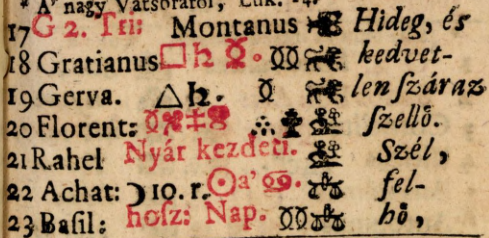 * A' nagy Vatsoráról, Luk. 14.
17 G 2. Tri: Montanus Hideg, és
18 Gratianus □ ♄ ☿. kedvet-
19 Gerva. △ ♄. ☿ len ſzáraz
20 Florent: ſzellő.
21 Rahel Nyár kezdeti. Szél,
22 Achat: ☽ 10. r. ☉ a' ♋. fel-
23 Baſil: hoſz: Nap. hő,